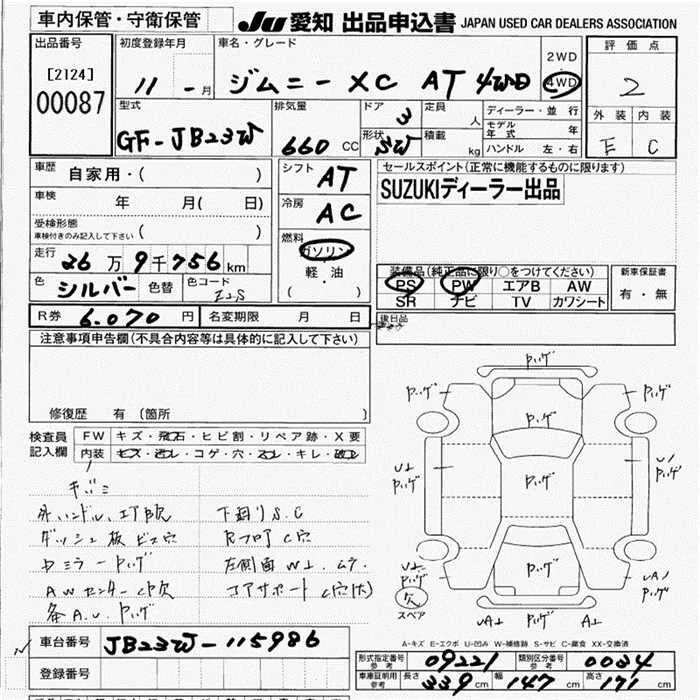 車内保管・守衛保管
JU 愛知 出品申込書 JAPAN USED CAR DEALERS ASSOCIATION
出品番号
[2124]
00087
初度登録年月
11 - 月
車名・グレード
ジムニー XC AT 4WD
2WD
4WD
評価点
2
外装 内装
E C
型式
GF-JB23W
排気量
660 CC
ドア
3
形状
SW
定員
人
積載
kg
ディーラー・並行
モデル年式 年
ハンドル 左・右
車歴
自家用・( )
車検
年 月( 日)
受検形態
車検付きのみ記入して下さい ( )
走行
26万9千756km
色
シルバー 色替
色コード
Z2S
シフト
AT
冷房
AC
燃料
ガソリン
軽・油
( )
セールスポイント(正常に機能するものに限ります)
SUZUKIディーラー出品
装備品(純正品に限り○をつけてください)
PS PW エアB AW
SR ナビ TV カワシート
新車保証書
有・無
R券 6.070 円 名変期限 月 日
後日品
注意事項申告欄(不具合内容等は具体的に記入して下さい)
修復歴 有 (箇所
検査員記入欄
FW キズ・飛石・ヒビ割・リペア跡・X要
内装 キズ・汚レ・コゲ・穴・スレ・キレ・破レ
キバミ
外ハンドル、エアB欠
ダッシュ板ビス穴
Dミラーpハゲ
AWセンターC P欠
下廻りS.C
RフロアC穴
コアサポートC穴(大)
各A.U.Pハゲ
Pハゲ
Pハゲ Pハゲ
Pハゲ
U⊥ Pハゲ
Pハゲ
Pハゲ
Pハゲ
欠
スペア
UA⊥ Pハゲ A⊥
A-キズ E-エクボ U-凹み W-補修跡 S-サビ C-腐食 XX-交換済
車台番号 JB23W-115986
登録番号
形式指定番号 参考 09221 類別区分番号 参考 0034
車庫証明用 参考 長さ 339 cm 幅 147 cm 高さ 171 cm